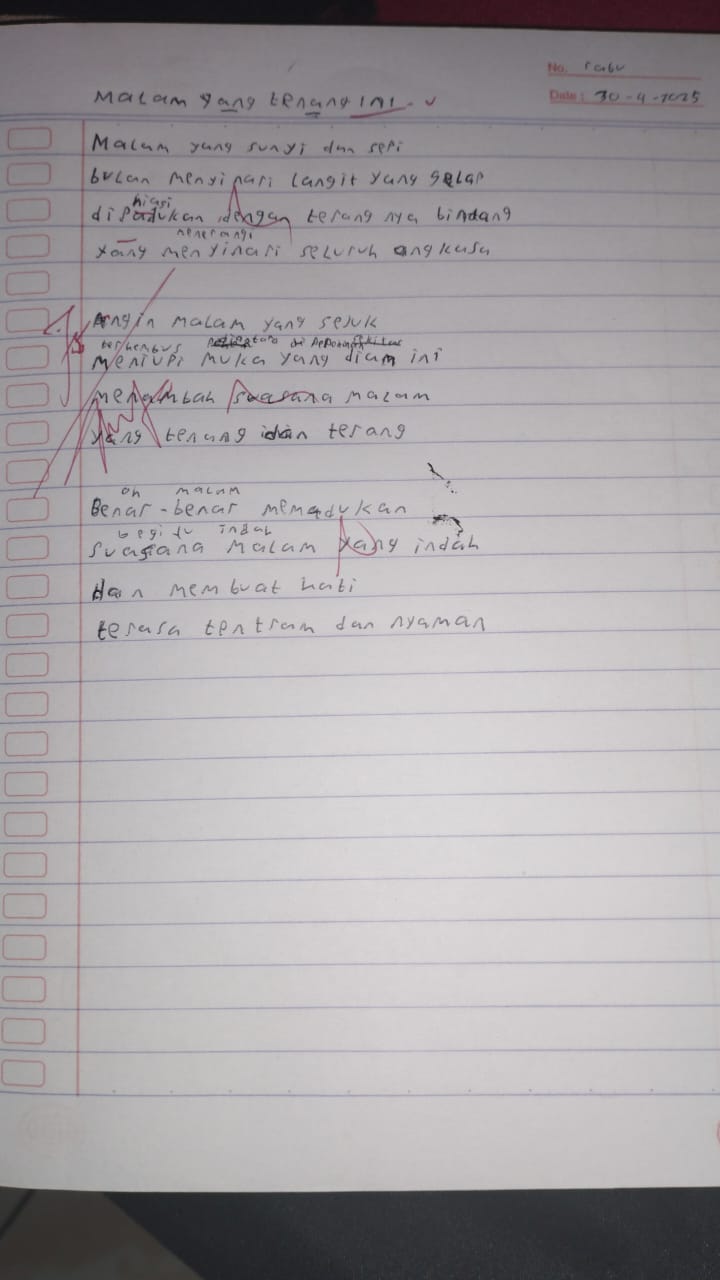 No. rabu
Date: 30-4-2025
Malam yang tenang ini
Malam yang sunyi dan sepi
bulan menyinari langit yang gelap
hiasi
dipadukan dengan terang nya bindang
menerangi
yang menyinari seluruh angkasa
Angin malam yang sejuk
berhembus di
meniupi muka yang diam ini
menambah suasana malam
yang tenang dan terang
oh malam
Benar-benar memadukan
begitu indah
suasana malam yang indah
dan membuat hati
terasa tentram dan nyaman